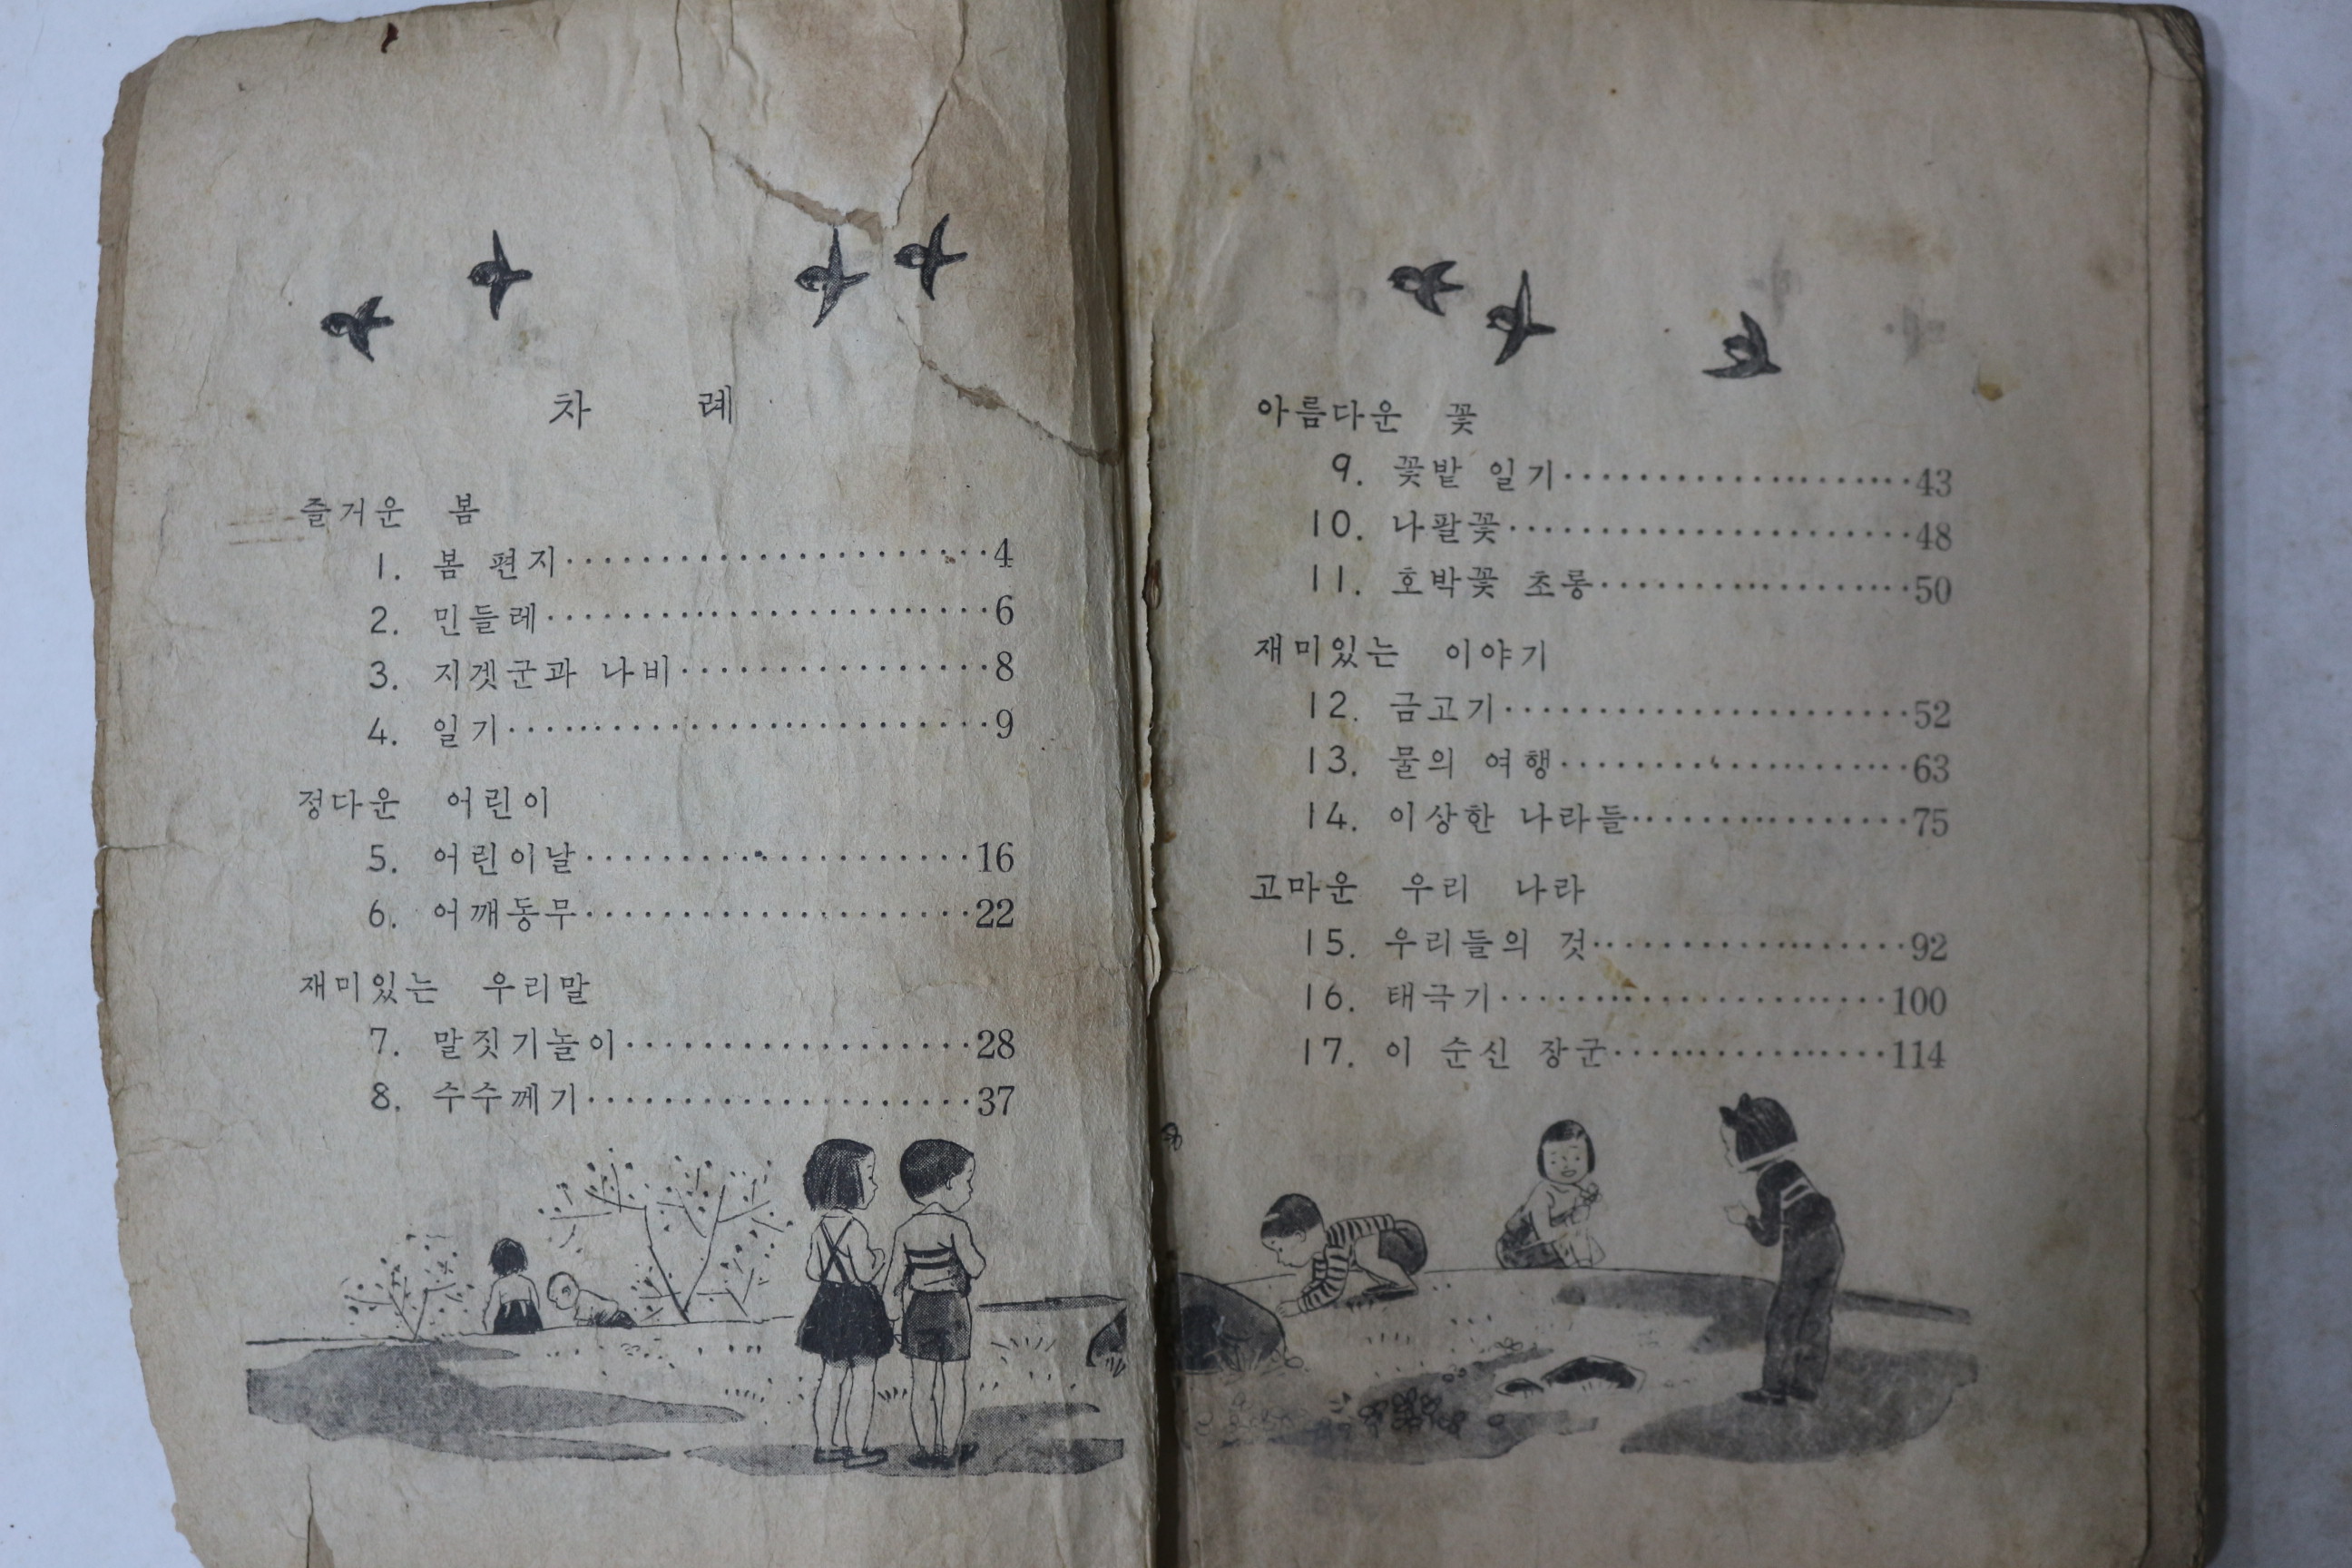 차 례
즐거운 봄
1. 봄 편지························4
2. 민들레························6
3. 지겟군과 나비·················8
4. 일기··························9
정다운 어린이
5. 어린이날·····················16
6. 어깨동무·····················22
재미있는 우리말
7. 말짓기놀이···················28
8. 수수께기·····················37
아름다운 꽃
9. 꽃밭 일기···················43
10. 나팔꽃······················48
11. 호박꽃 초롱·················50
재미있는 이야기
12. 금고기······················52
13. 물의 여행···················63
14. 이상한 나라들···············75
고마운 우리 나라
15. 우리들의 것·················92
16. 태극기·····················100
17. 이 순신 장군···············114